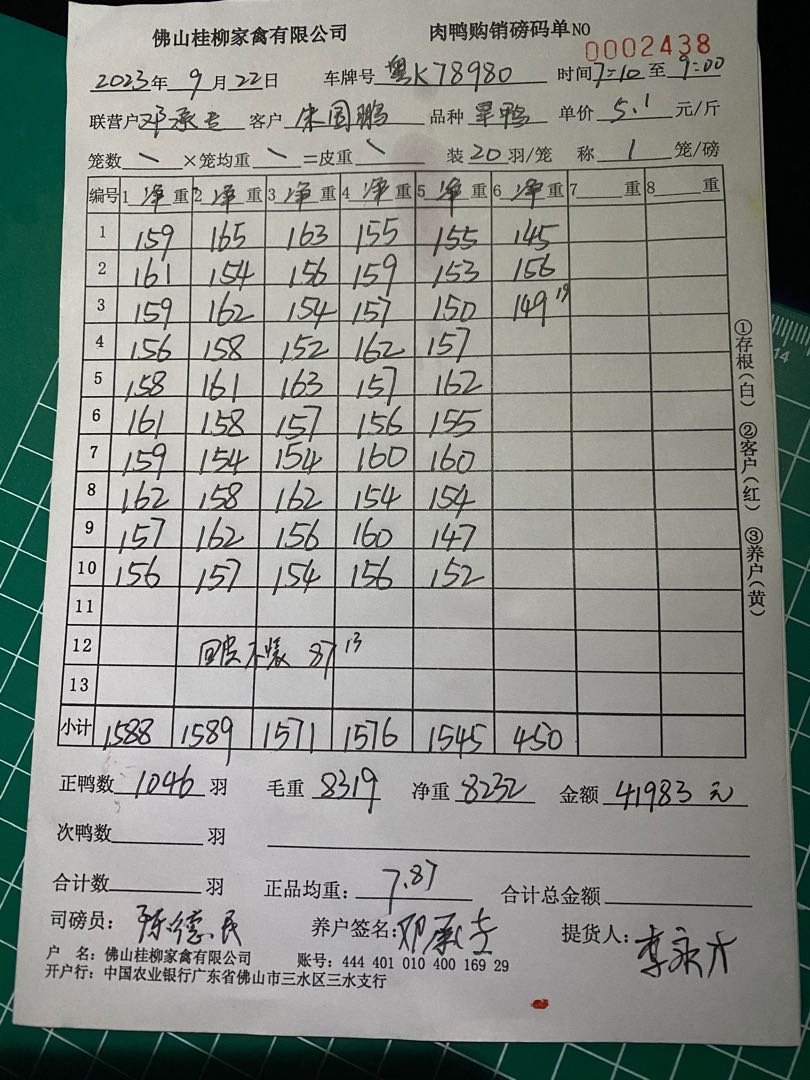 佛山桂柳家禽有限公司 肉鸭购销磅码单NO 0002438
2023年 9月 22日 车牌号 粤K78980 时间 7=10 至 9=00
联营户 邓承志 客户 朱国鹏 品种 旱鸭 单价 5.1 元/斤
笼数 \ ×笼均重 \ =皮重 \ 装 20 羽/笼 称 1 笼/磅
编号 1 净 重 2 净 重 3 净 重 4 净 重 5 净 重 6 净 重 7 重 8 重
1 159 165 163 155 155 145
2 161 154 156 159 153 156
3 159 162 154 157 150 149 19
4 156 158 152 162 157
5 158 161 163 157 162
6 161 158 157 156 155
7 159 154 154 160 160
8 162 158 162 154 154
9 157 162 156 160 147
10 156 157 154 156 152
11
12 回皮 87 13
13
小计 1588 1589 1571 1576 1545 450
正鸭数 1046 羽 毛重 8319 净重 8232 金额 41983 元
次鸭数 羽
合计数 羽 正品均重: 7.87 合计总金额
司磅员: 陈德民 养户签名: 邓承志 提货人: 李永才
户 名: 佛山桂柳家禽有限公司 账号: 444 401 010 400 169 29
开户行: 中国农业银行广东省佛山市三水区三水支行
①存根(白) ②客户(红) ③养户(黄)
14